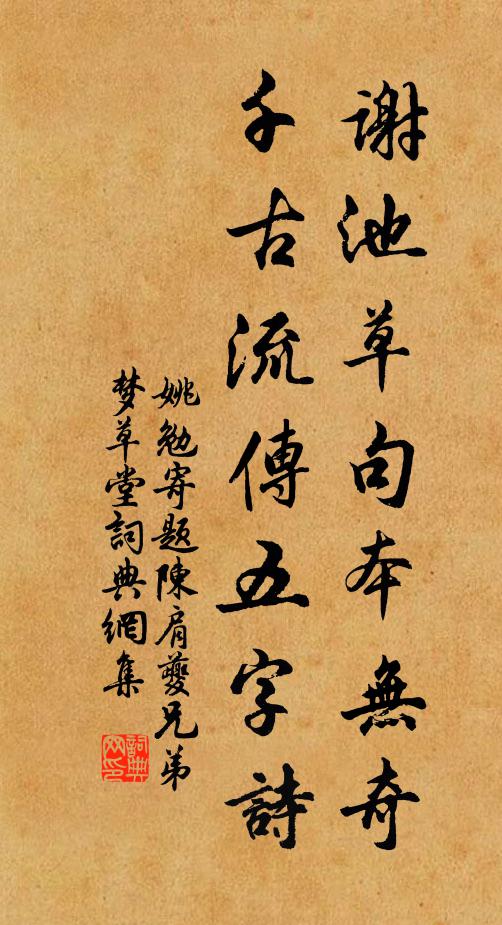 謝池草句本無奇
千古流傳五字詩
姚勉寄題陳肩夔兄弟
梦草堂詞典網集
詞典网印